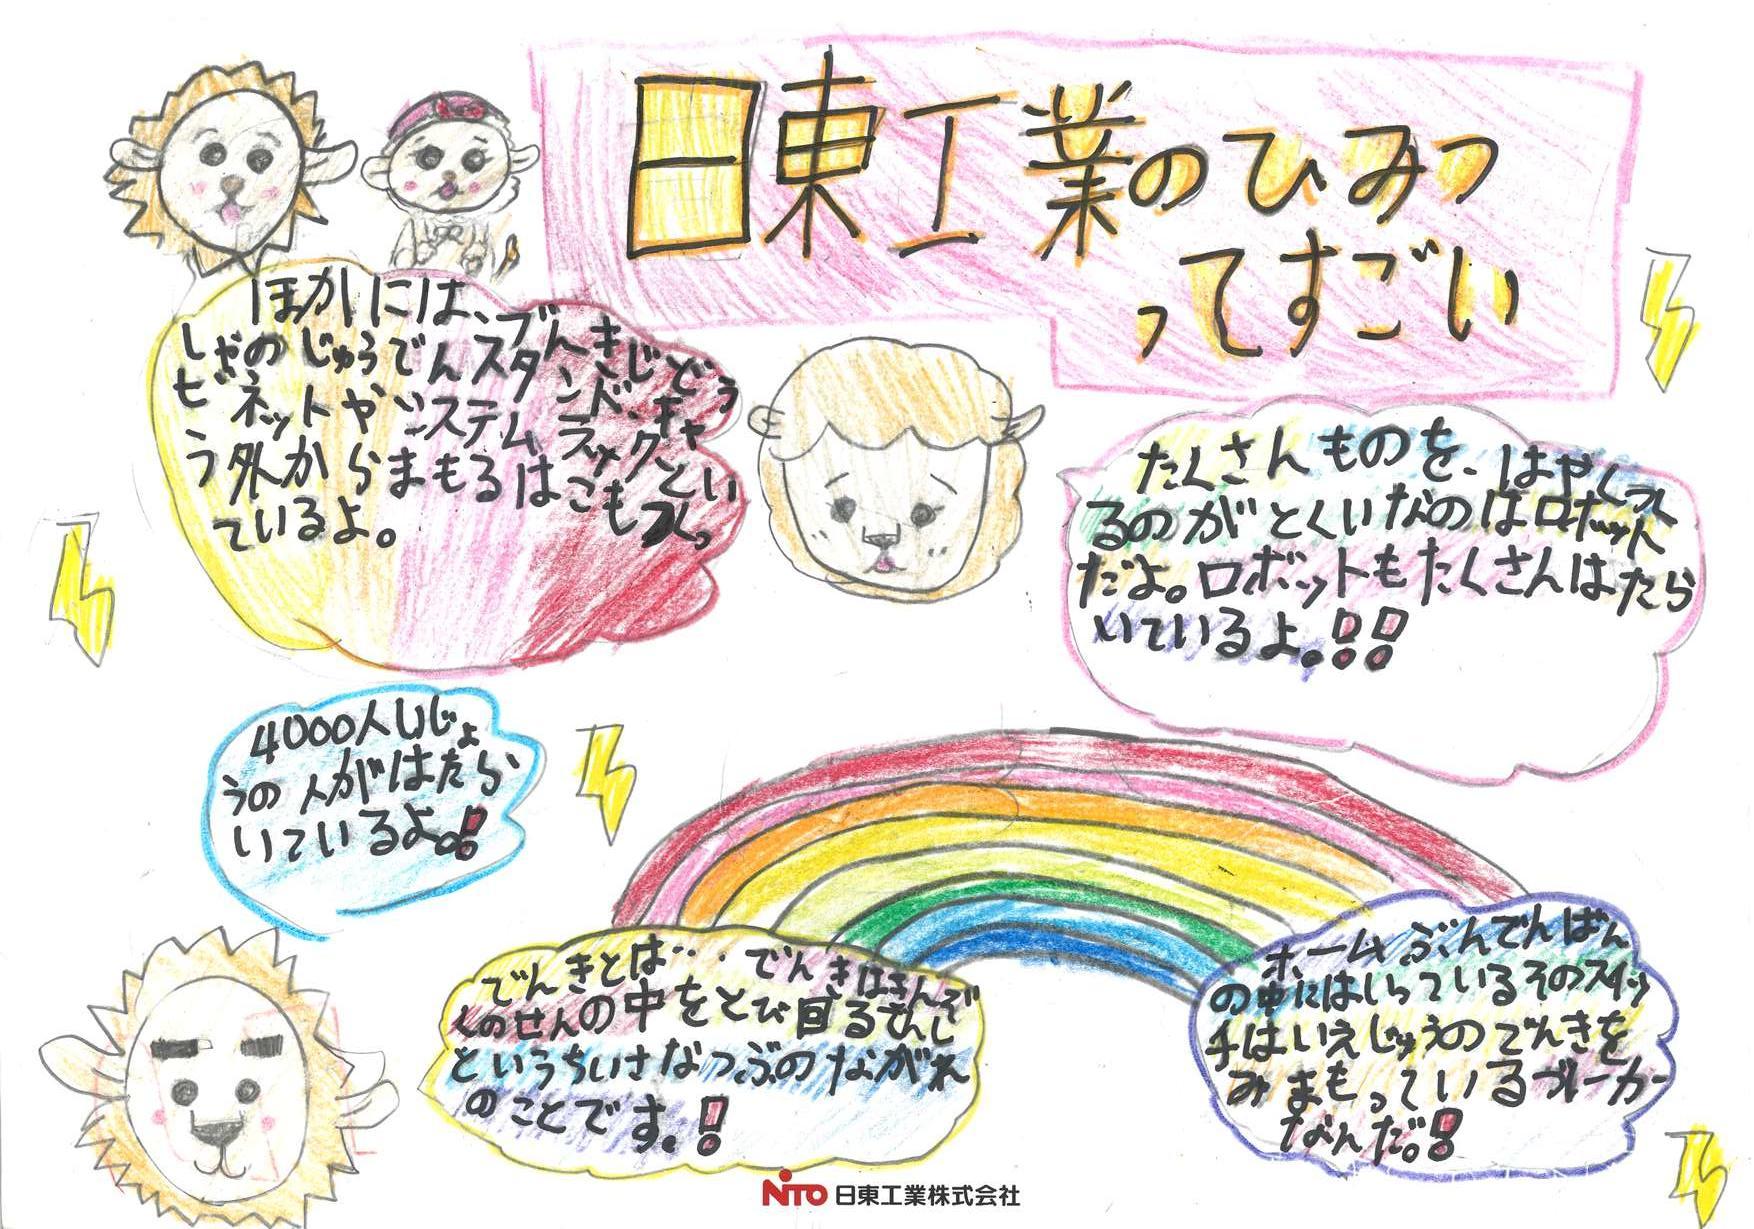 日東工業のひみつ
ってすごい
ほかには、でんきじどう
しゃのじゅうでんスタンド、キャ
ビネットやシステムラックとい
う外からまもるはこもつくっ
ているよ。
たくさんものを、はやくつく
るのがとくいなのはロボット
だよ。ロボットもたくさんはたら
いているよ。!!
4000人いじょ
うの人がはたら
いているよ。!
でんきとは‥でんきはきんぞ
くのせんの中をとび回るでんし
というちいさなつぶのながれ
のことです。!
ホームぶんでんばん
の中にはいっているそのスイッ
チはいえじゅうのでんきを
みまもっているブレーカー
なんだ。!
NITO 日東工業株式会社